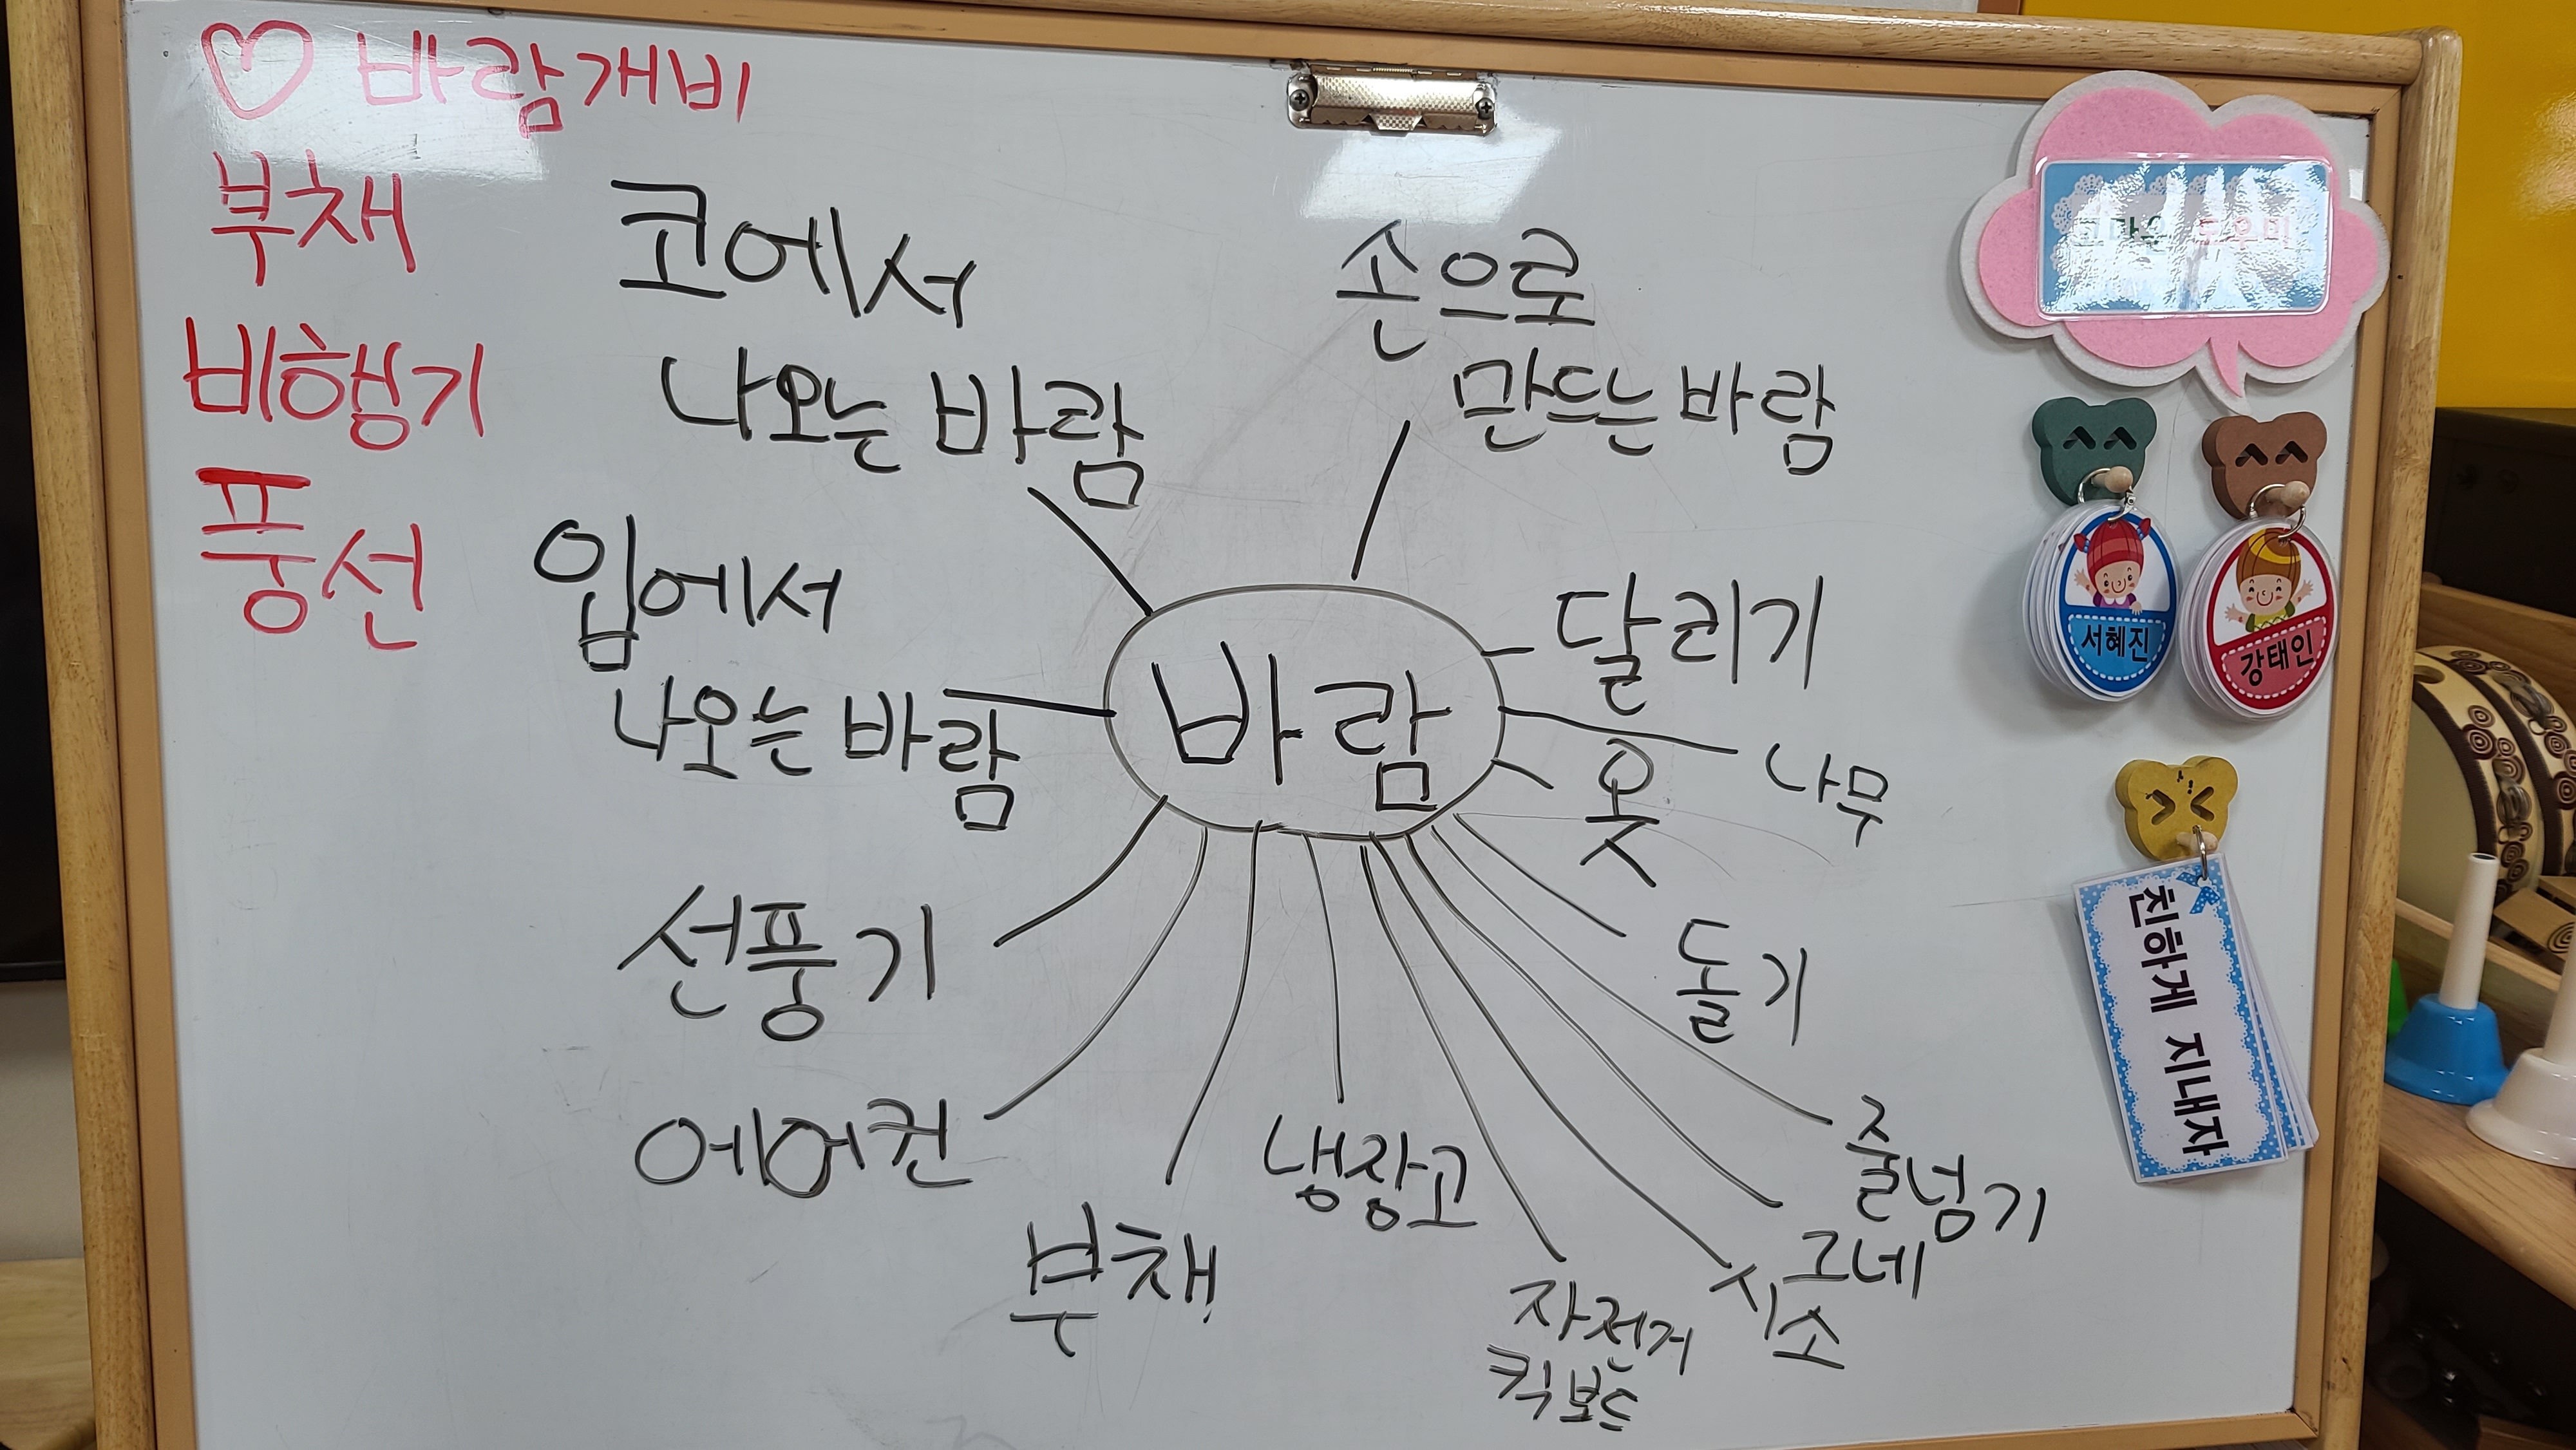 ♡ 바람개비
부채
비행기
풍선
코에서
나오는 바람
손으로
만드는 바람
입에서
나오는 바람
바람
달리기
나무
옷
선풍기
돌기
에어컨
냉장고
줄넘기
부채
그네
시소
자전거
킥보드
고마운 도우미
서혜진
강태인
친하게 지내자